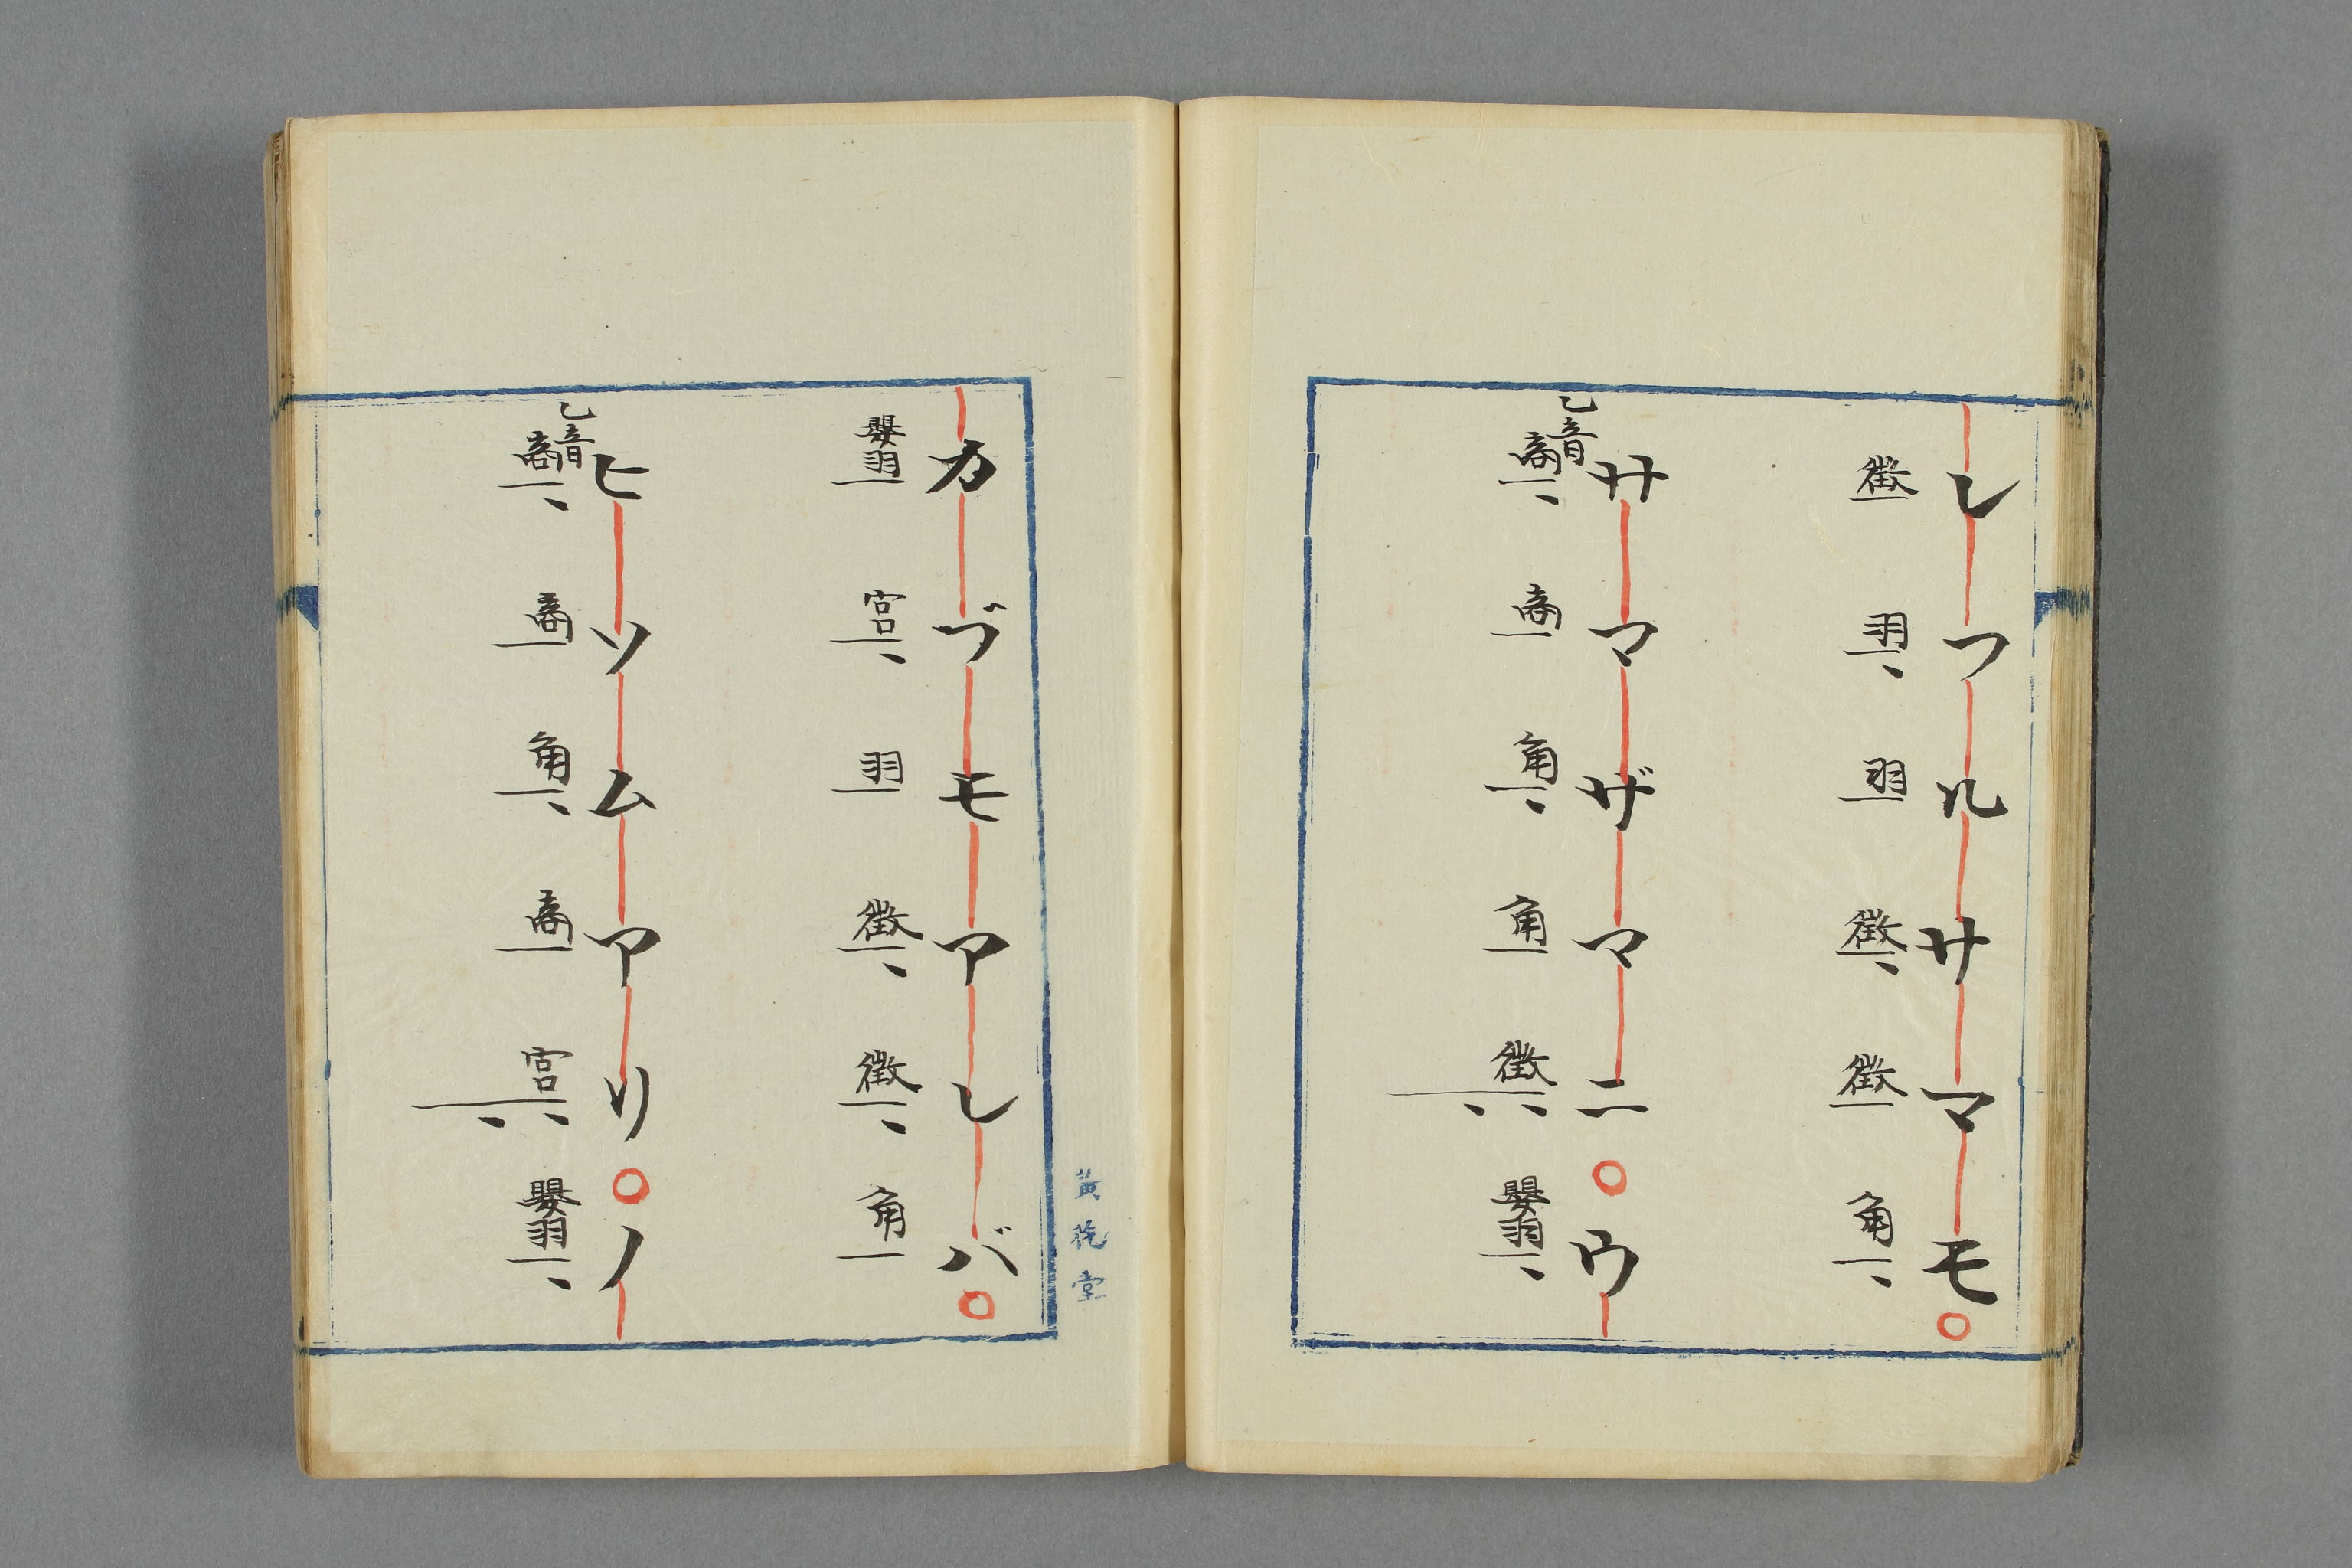 レツルサマモ○
徴 羽 羽 徴 徴 角
乙音
サマザマニ○ウ
商 商 角 角 徴 嬰羽
カヅモアレバ○
嬰羽 宮 羽 徴 徴 角
乙音
ヒソムアリ○ノ
商 商 角 商 宮 嬰羽